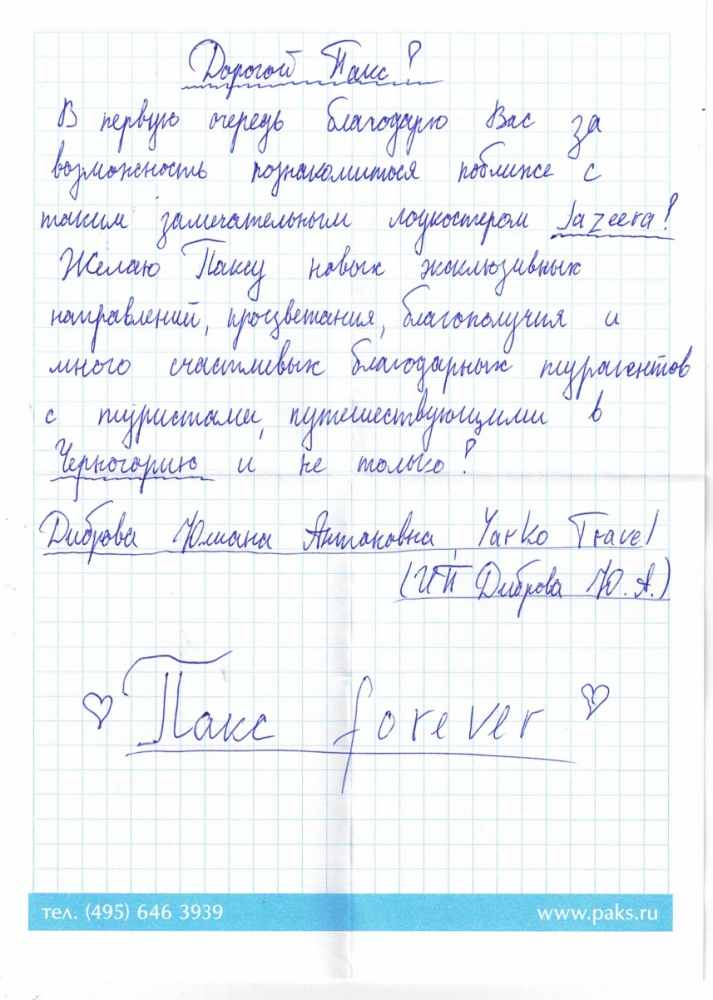 Дорогой Пакс!
В первую очередь благодарю Вас за
возможность познакомиться поближе с
таким замечательным лоукостером Jazeera!
Желаю Паксу новых эксклюзивных
направлений, процветания, благополучия и
много счастливых благодарных турагентов
с туристами, путешествующими в
Черногорию и не только!
Диброва Юлиана Антоновна, Yarko Travel
(ИП Диброва Ю. А.)
Пакс forever
тел. (495) 646 3939 www.paks.ru